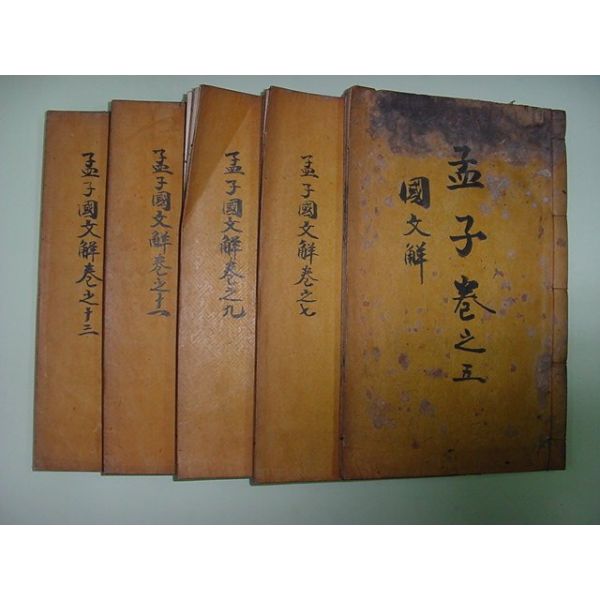 孟子卷之五
國文解
孟子國文解卷之七
孟子國文解卷之九
孟子國文解卷之十一
孟子國文解卷之十三